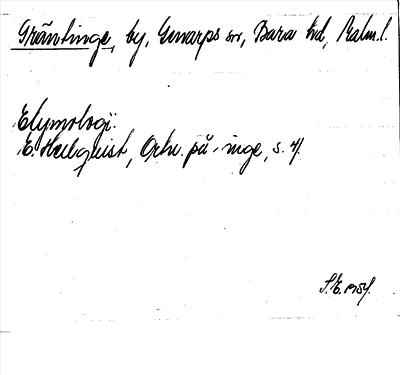 Gräntinge, by, Genarps sn, Bara hd, Malm. l.
Etymologi:
E. Hellquist, Ortn. på -inge, s. 41.
S.E. 1954.